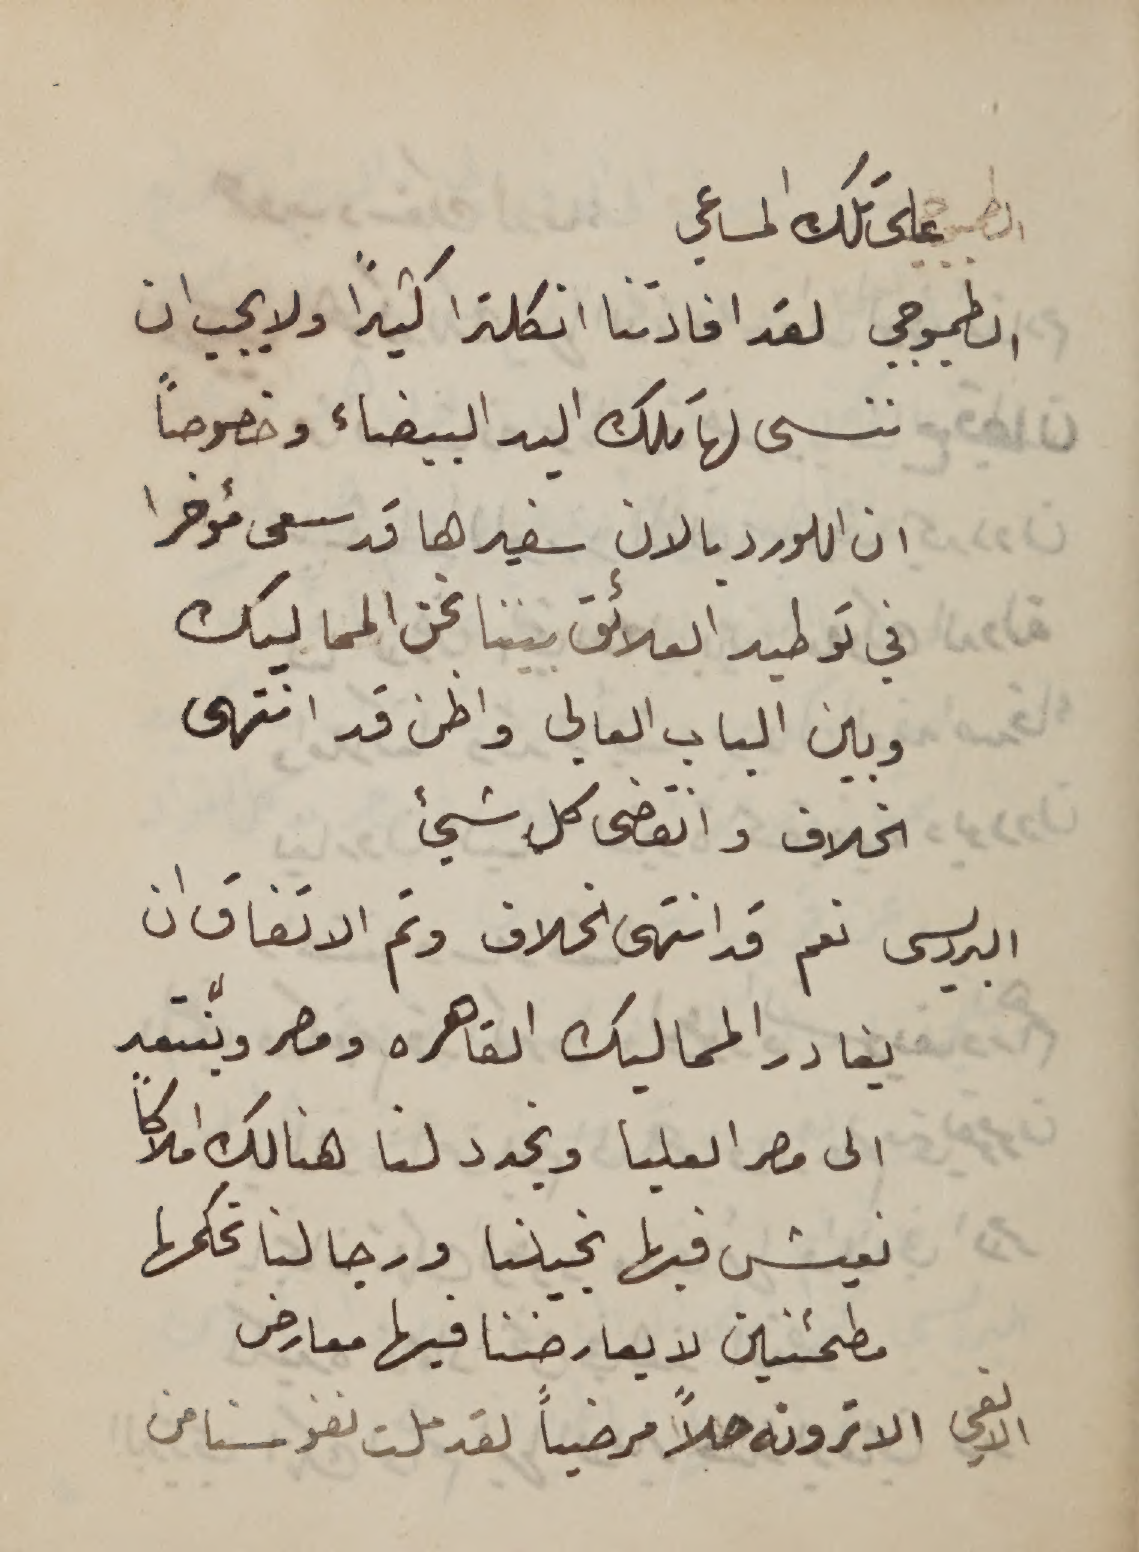 على تلك المساعي
الطمبوجي لقد افادتنا انكلترا كثيراً ولا يجب ان
ننسى لها تلك اليد البيضاء وخصوصاً
ان اللورد بالان سفيرها قد سعى مؤخرا
في توطيد العلائق بيننا نحن المماليك
وبين الباب العالي واظن قد انتهى
الخلاف وانقضى كل شيئ
البرديسى نعم قد انتهى الخلاف وتم الاتفاق ان
يغادر المماليك القاهره ومصر ويبتعد
الى مصر العليا ويحدد لنا هنالك املاكاً
نعيش فيها بخيلنا ورجالنا نحكمها
مطمئنين لا يعارضنا فيها معارض
الالفي الا ترونه حلاً مرضياً لقد ملت نفوسنا من